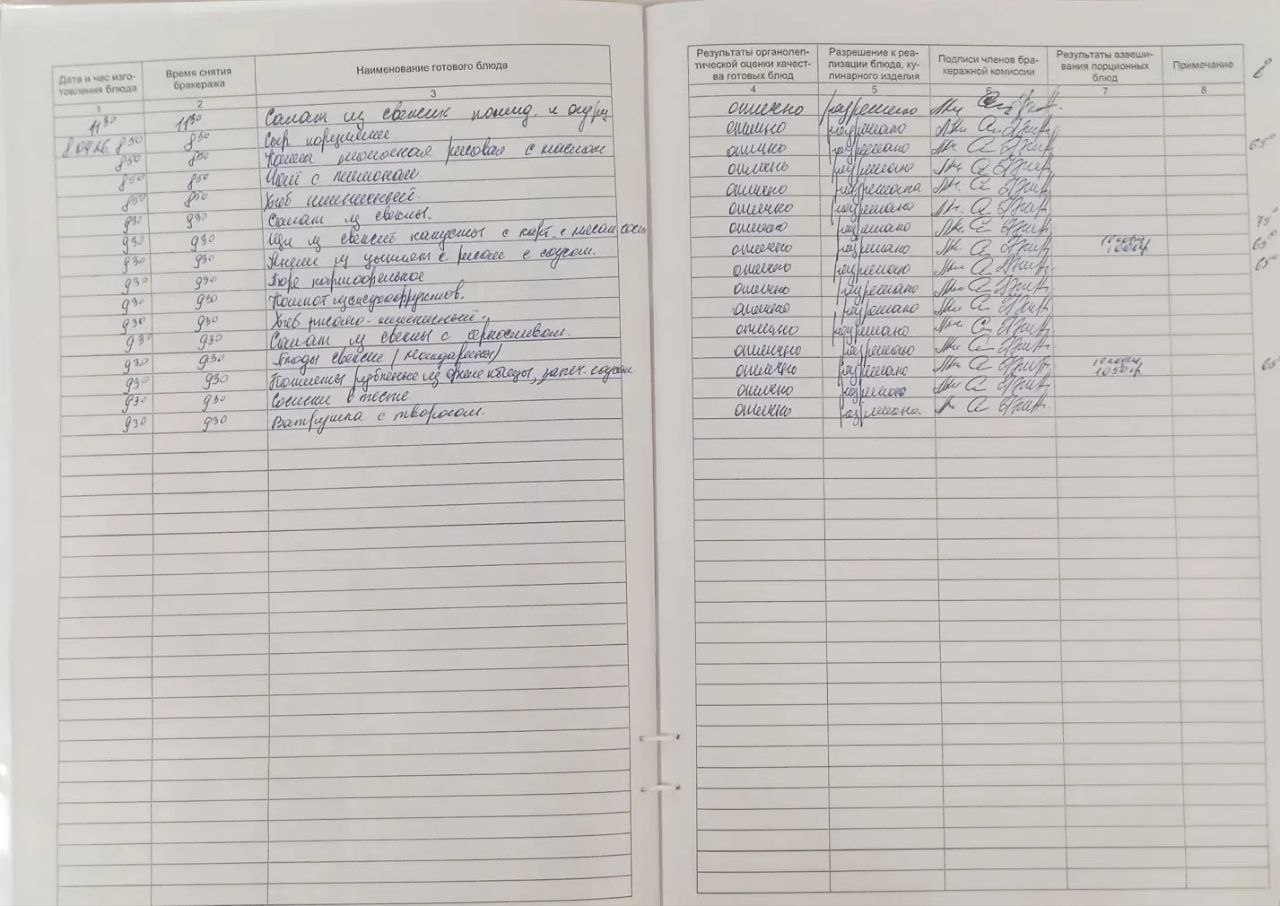 Дата и час изго-товления блюда Время снятия бракеража Наименование готового блюда
1 2 3
11 30 11 30 Салат из свежих помид. и огурц
8.04.26 8 50 8 50 Сыр порционно
8 50 8 50 Каша молочная рисовая с маслом
8 50 8 50 Чай с лимоном.
8 50 8 50 Хлеб пшеничный.
9 30 9 30 Салат из свеклы.
9 30 9 30 Щи из свежей капусты с карт. с мясом
9 30 9 30 из цыплят с рисом с соусом.
9 30 9 30 Пюре картофельное
9 30 9 30 Компот из сухофруктов.
9 30 9 30 Хлеб ржано-пшеничный.
9 30 9 30 Салат из свеклы с черносливом.
9 30 9 30 Плоды свежие (мандарины)
9 30 9 30 Котлеты рубленые из запеч. соусом
9 30 9 30 Сосиски в тесте
9 30 9 30 Ватрушка с творогом.
Результаты органолеп-тической оценки качест-ва готовых блюд Разрешение к реа-лизации блюда, ку-линарного изделия Подписи членов бра-керажной комиссии Результаты взвеши-вания порционных блюд Примечание t°
4 5 6 7 8
отлично разрешено
отлично разрешено
отлично разрешено 65°
отлично разрешено
отлично разрешено
отлично разрешено
отлично разрешено 75°
отлично разрешено 10 порц 1000гр 65°
отлично разрешено 65°
отлично разрешено
отлично разрешено
отлично разрешено
отлично разрешено
отлично разрешено 10 порц 1050гр 65
отлично разрешено
отлично разрешено.